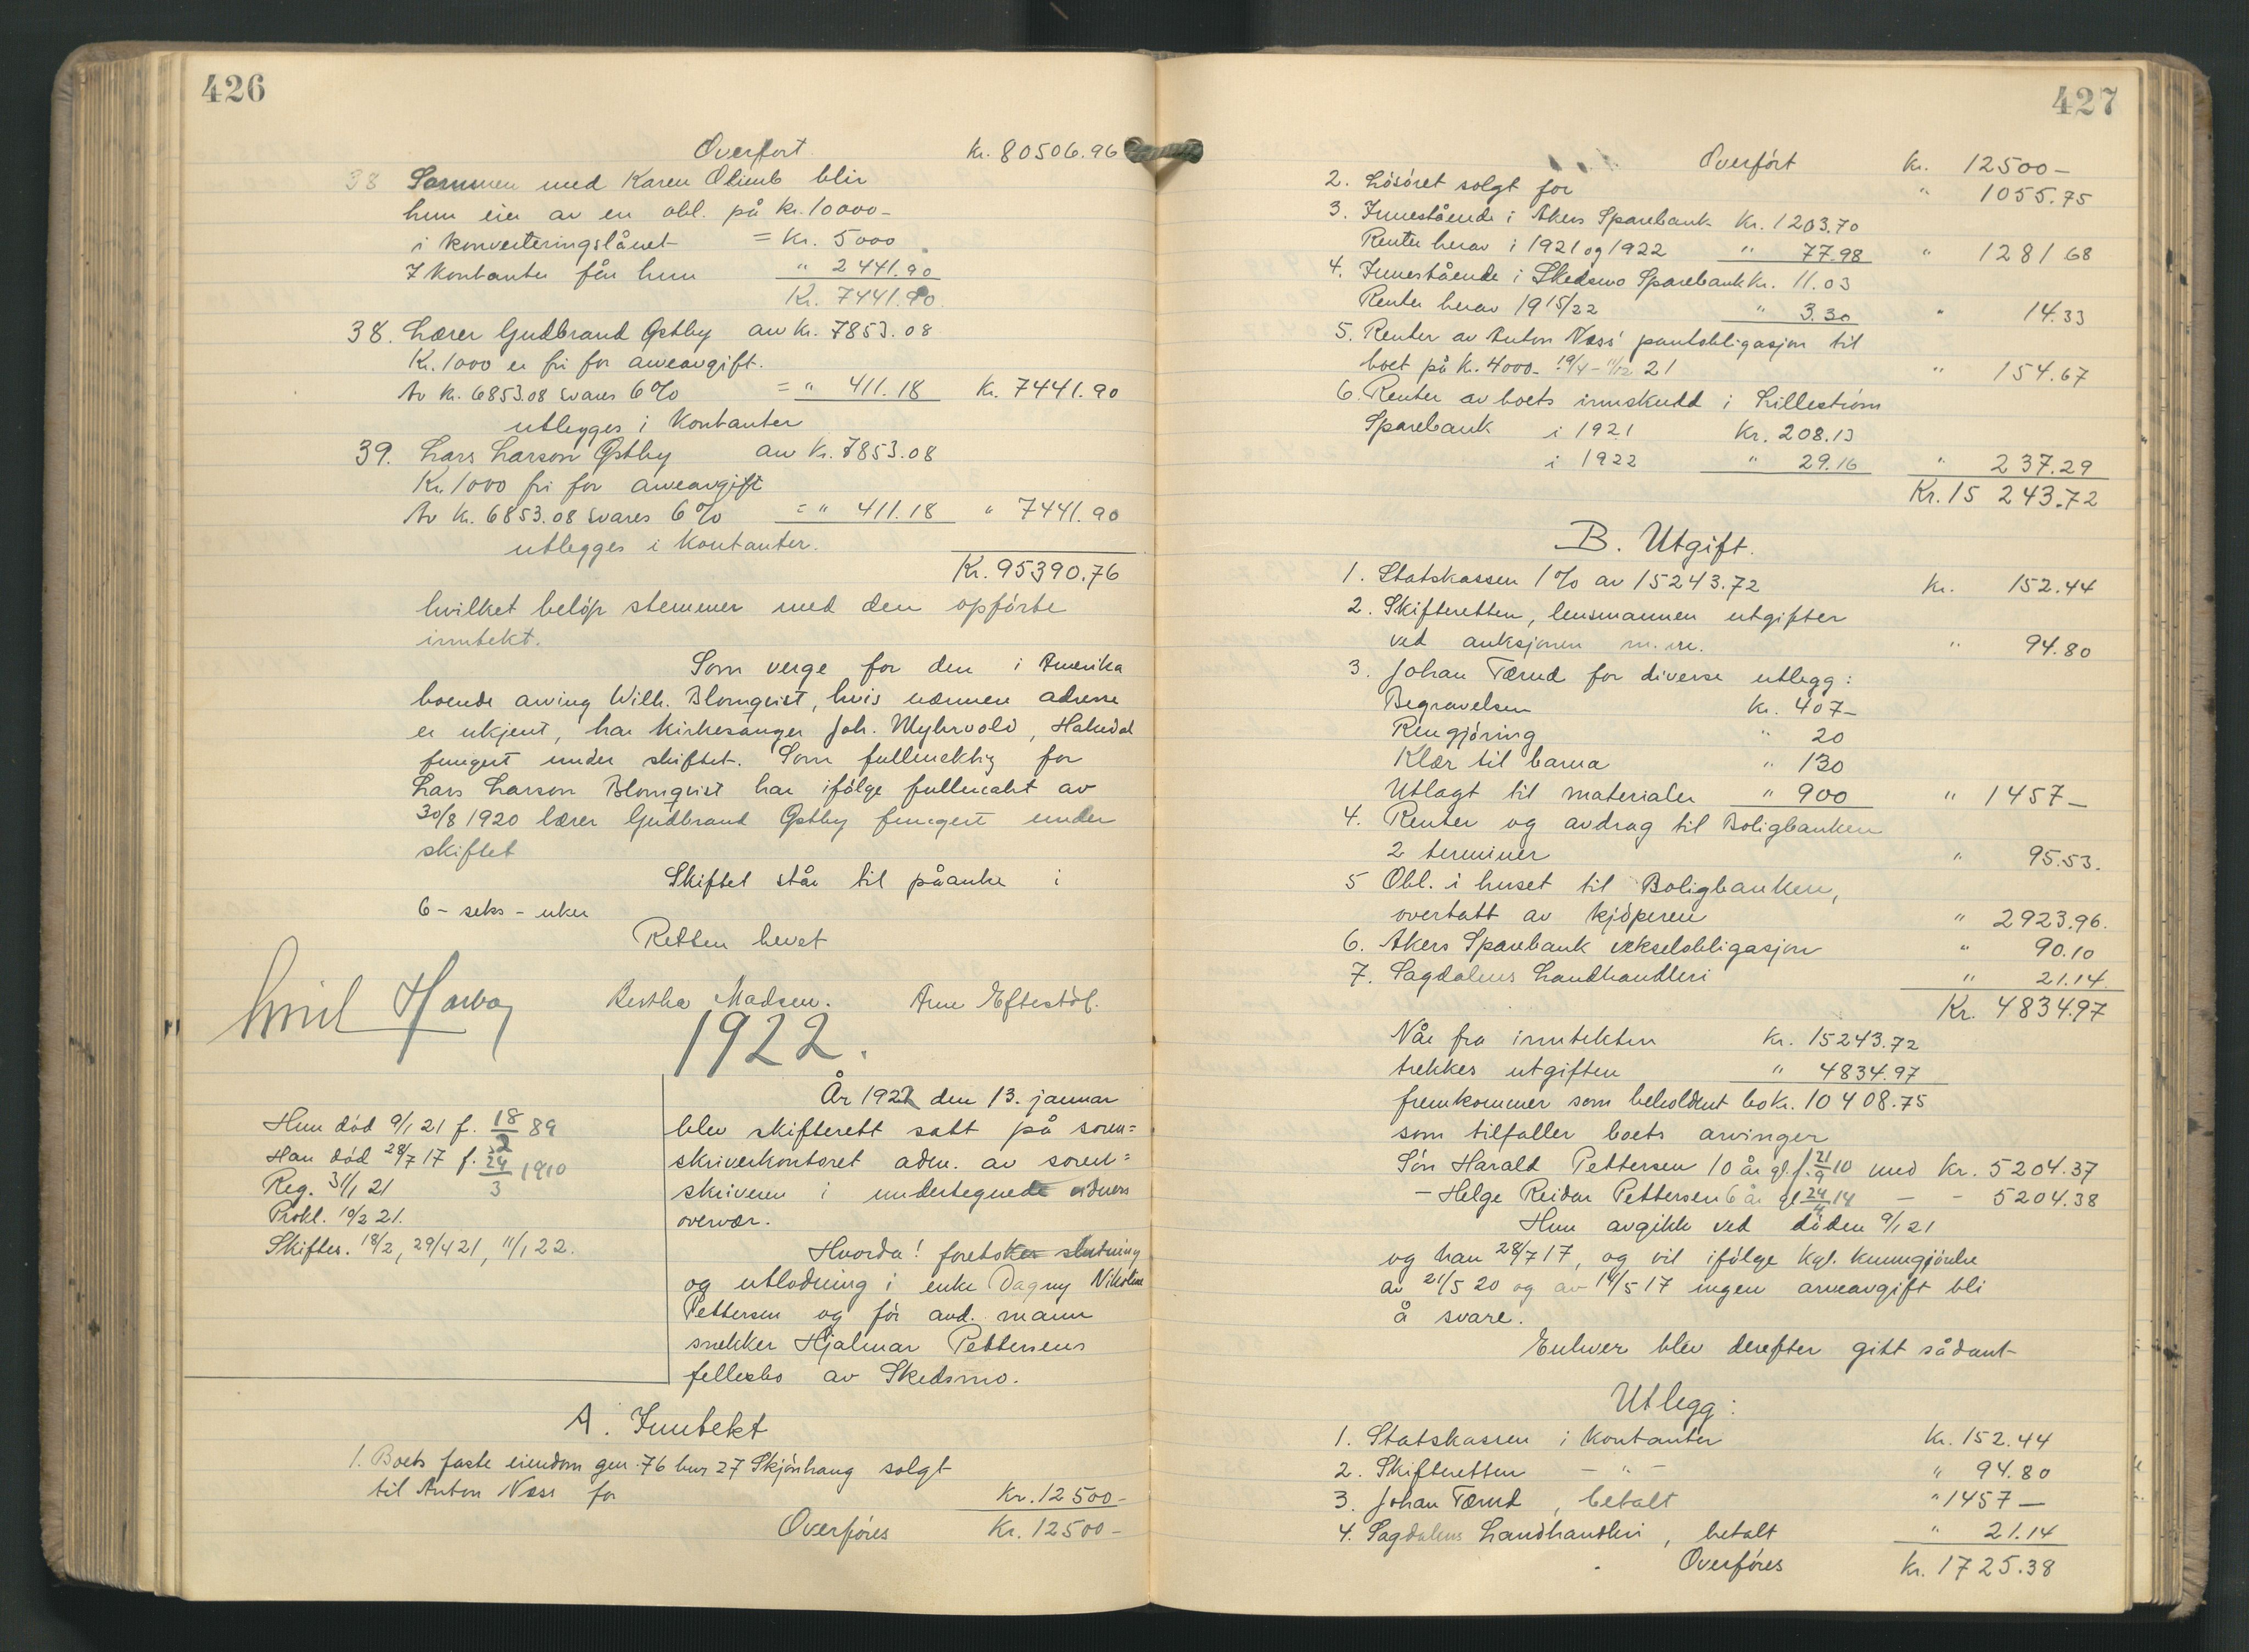 426
Overført Kr. 80506.96
38 Sammen med Karen Olimb blir
hun eier av en obl. på kr. 10000-
i konverteringslånet = Kr. 5000
I kontanter får hun " 2441.90
Kr. 7441.90
38. Lærer Gudbrand Østby arv Kr. 7853.08
Kr. 1000 er fri for arveavgift.
Av Kr. 6853.08 svares 6% = " 411.18 Kr. 7441.90
utlegges i kontanter
39. Lars Larson Østby arv Kr. 7853.08
Kr. 1000 fri for arveavgift
Av Kr. 6853.08 svares 6% = " 411.18 " 7441.90
utlegges i kontanter.
Kr. 95390.76
hvilket beløp stemmer med den opførte
inntekt.
Som verge for den i Amerika
boende arving Wilh. Blomqvist, hvis nærmere adresse
er ukjent, har kirkesanger Joh. Myhrvold, Hakedal
fungert under skiftet. Som fullmektig for
Lars Larson Blomqvist har ifølge fullmakt av
30/8 1920 lærer Gudbrand Østby fungert under
skiftet
Skiftet står til påanke i
6 - seks - uker
Retten hevet
Bertha Madsen. Arne Eftestøl.
1922.
Hun død 9/1 21 f. 18/2 89
Han død 28/7 17 f.
Reg. 31/1 21
Prokl. 10/2 21.
Skiftes. 18/2, 29/4 21, 11/1 22.
År 1922 den 13. januar
blev skifterett satt på soren=
skriverkontoret adm. av soren=
skriveren i undertegnede vidners
overvær.
Hvorda! foretokes slutning
og utlodning i enke Dagny Nikoline
Pettersen og før avd. mann
snekker Hjalmar Pettersens
fellesbo av Skedsmo.
A. Inntekt
1. Boets faste eiendom gnr. 76 bnr 27 Skjønhaug solgt
til Anton Næss for Kr. 12500-
Overføres Kr. 12500-
427
Overført Kr. 12500-
2. Løsøret solgt for " 1055.75
3. Innestående i Akers Sparebank Kr. 1203.70
Renter herav i 1921 og 1922 " 77.98 " 1281 68
4. Innestående i Skedsmo Sparebank Kr. 11.03
Renter herav 1915/22 " 3.30 " 14.33
5. Renter av Anton Næss' pantobligasjon til
boet på Kr. 4000- 19/4 - 11/12 21 " 154.67
6. Renter av boets innskudd i Lillestrøm
Sparebank i 1921 Kr. 208.13
i 1922 " 29.16 " 237.29
Kr. 15 243.72
B. Utgift.
1. Statskassen 1% av 15243.72 Kr. 152.44
2. Skifteretten, lensmannen utgifter
ved auksjonen m.m. " 94.80
3. Johan Tærud for diverse utlegg:
Begravelsen Kr. 407-
Rengjøring " 20
Klær til barna " 130
Utlagt til materialer " 900 " 1457-
4. Renter og avdrag til Boligbanken
2 terminer " 95.53.
5 Obl. i huset til Boligbanken,
overtatt av kjøperen " 2923.96.
6. Akers Sparebank vekselobligasjon " 90.10
7. Sagdalens Landhandleri " 21.14.
Kr. 4834.97
Når fra inntekten Kr. 15243.72
trekkes utgiften " 4834.97
fremkommer som beholdent bo Kr. 10408.75
som tilfaller boets arvinger
Søn Harald Pettersen 10 år gl. f. 21/9 10 med Kr. 5204.37
- Helge Reidar Pettersen 6 år gl 24/4 14 - - 5204.38
Hun avgikk ved døden 9/1 21
og han 28/7 17, og vil ifølge Kgl. kunngjørelse
av 21/5 20 og av 14/5 17 ingen arveavgift bli
å svare.
Enhver blev derefter gitt sådant
Utlegg:
1. Statskassen i kontanter Kr. 152.44
2. Skifteretten - " - " 94.80
3. Johan Tærud, betalt " 1457-
4. Sagdalens Landhandleri, betalt " 21.14
Overføres Kr. 1725.38